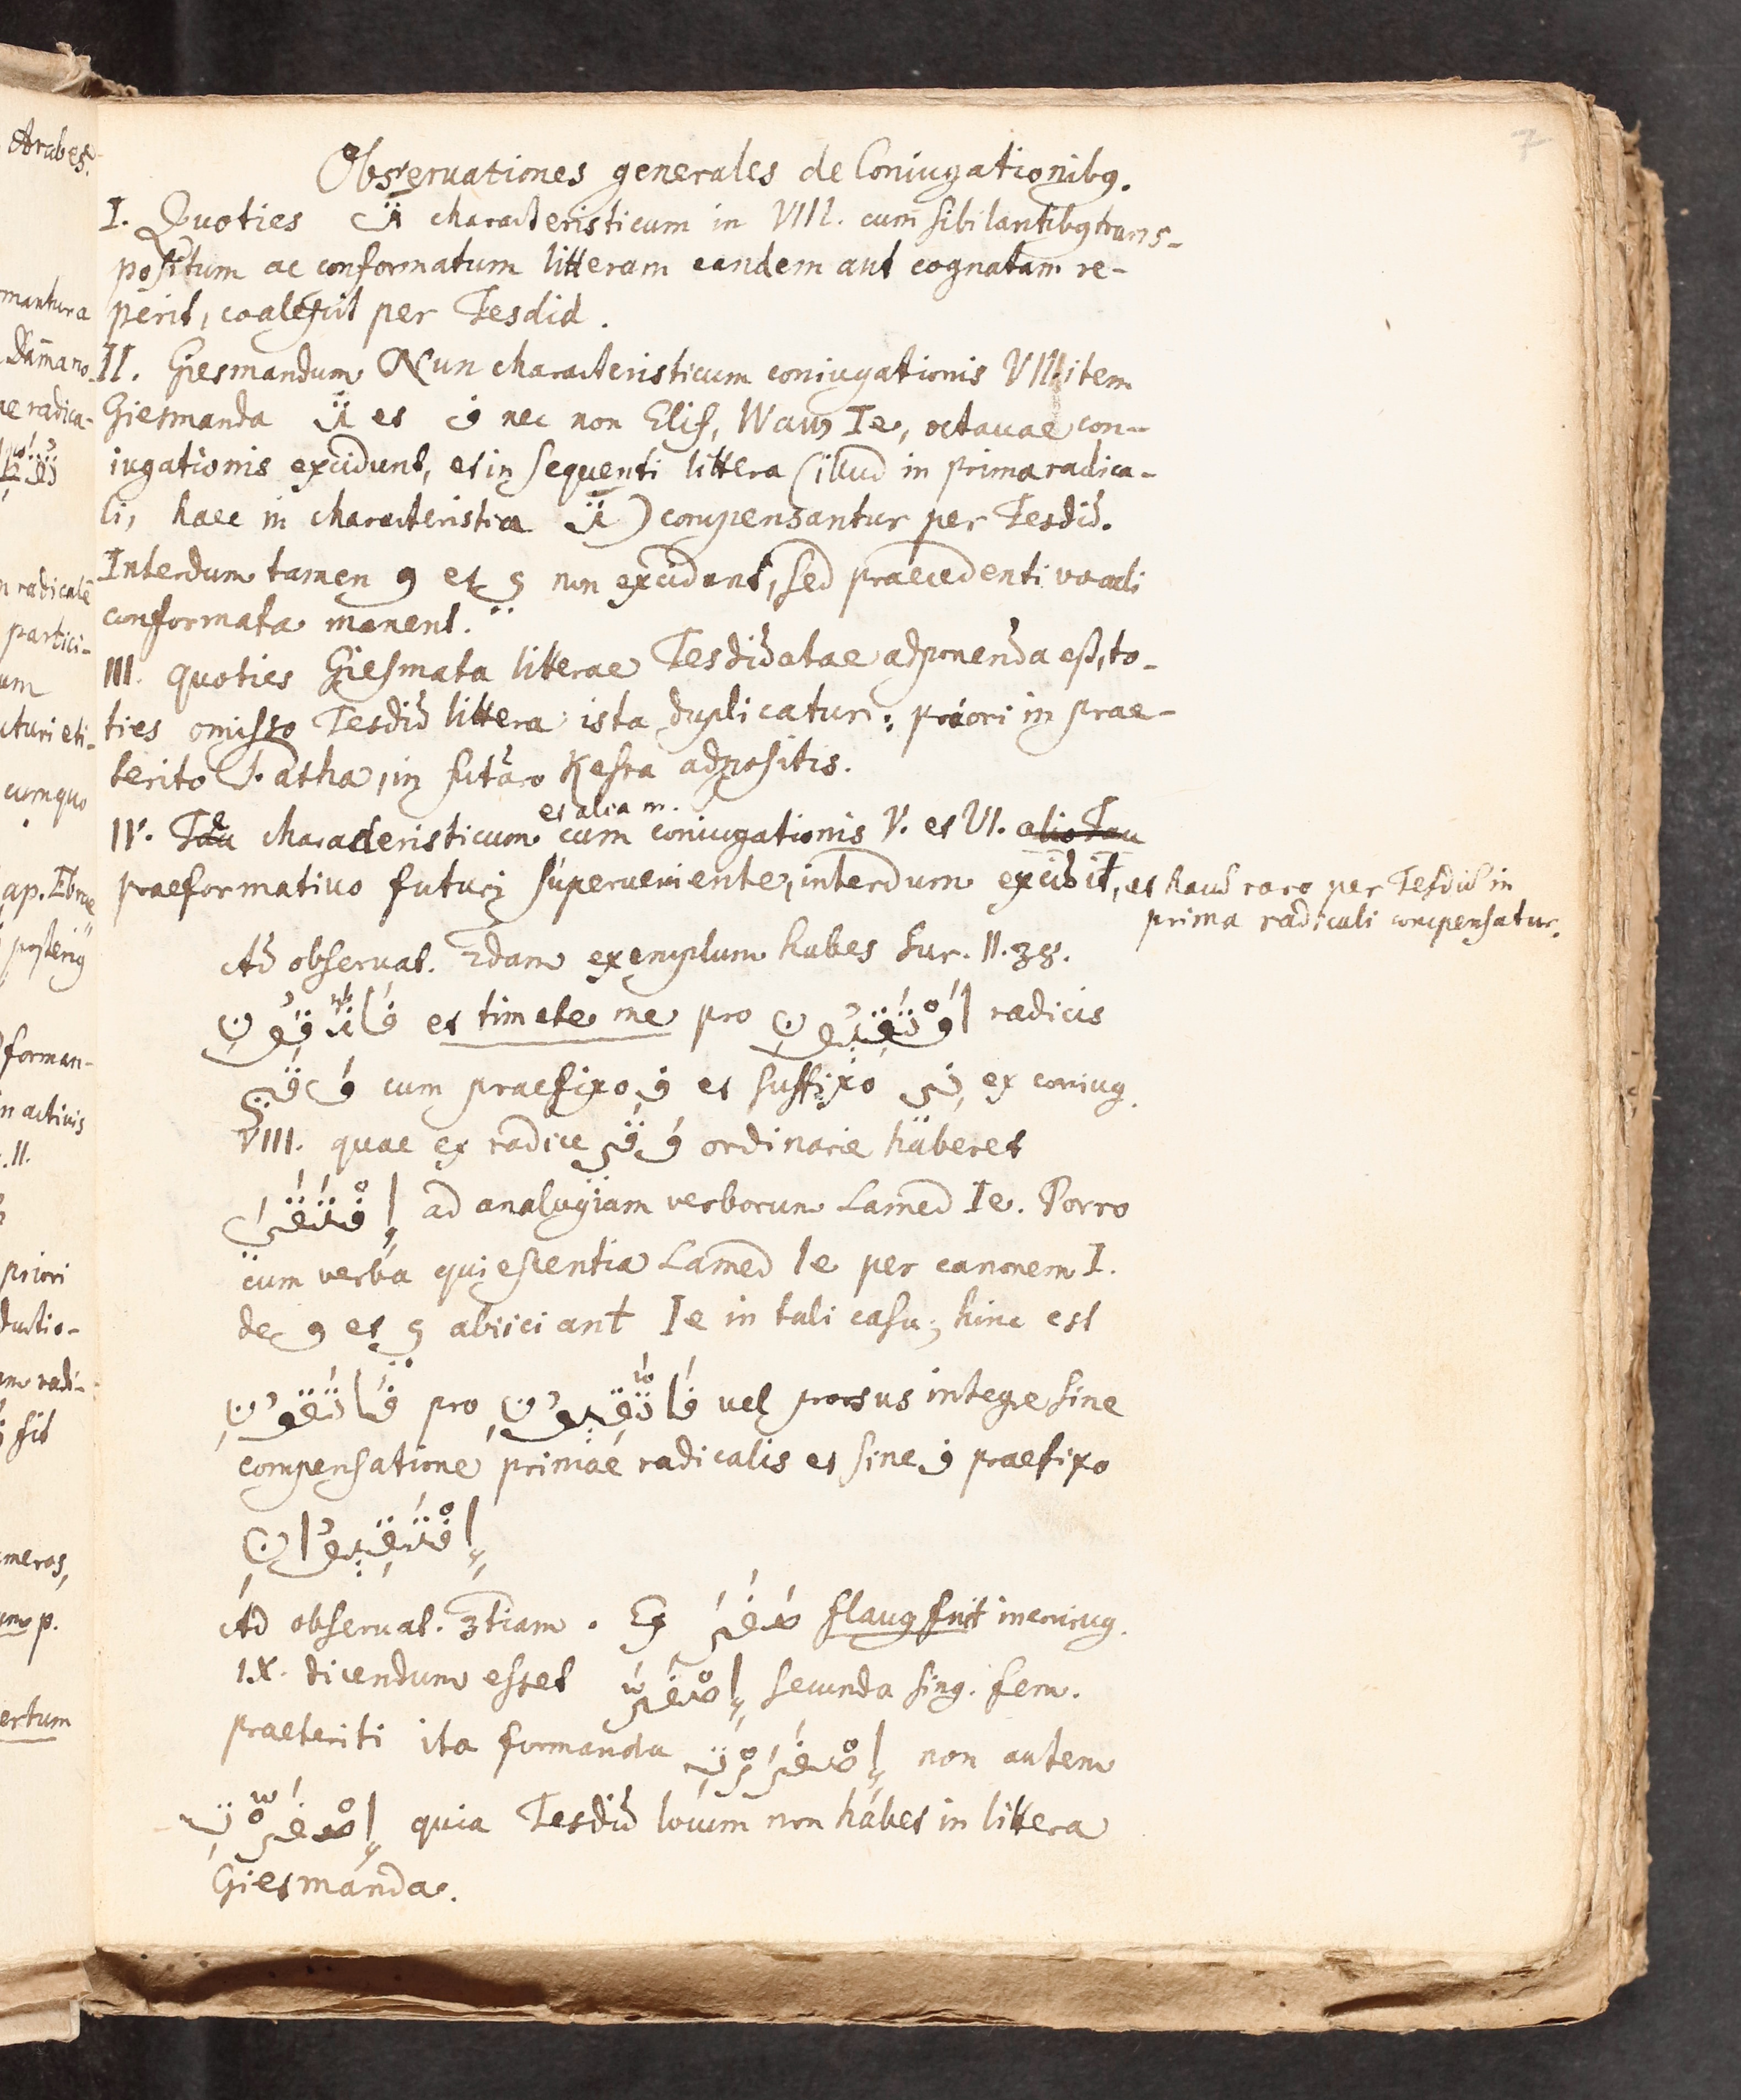 Obseruationes generales de Coniugationibꝯ.
I. Quoties ت characteristicum in VIII. cum sibilantibꝯ trans-
positum ac conformatum litteram eandem aut cognatam re-
perit, coalescit per Tesdid.
II. Giesmandum Nun characteristicum coniugationis VII item
Giesmanda ت et و nec non Elif, Waw Ie, octauae con-
iugationis excidunt, et in sequenti littera (illud in prima radica-
li, haec in characteristica ت) compensantur per Tesdid.
Interdum tamen و et ي non excidunt, sed praecedenti vocali
conformata manent.
III. quoties Giesmata litterae Tesdidatae adponenda est, to-
ties omisso Tesdid littera ista duplicatur: priori in prae-
terito Fatha, in futuro Kesra adpositis.
et alia m.
IV. Te characteristicum cum coniugationis V. et VI. alio Tau
praeformatiuo futuri superueniente, interdum excidit, et haud raro per Tesdid in
prima radicali compensatur.
Ad obseruat. 2dam exemplum habes Sur. II. 38.
فَاتَّقُونِ et timete me pro اَوْتَقِيُونِ radicis
وَقَي cum praefixo وَ et suffixo نِي ex coniug.
VIII. quae ex radice وَقَي ordinarie haberet
إِوْتَقَيَ ad analogiam verborum Lamed Ie. Porro
cum verba quiescentia Lamed Ie per canonem I.
de و et ي abiiciant Ie in tali casu; hinc est
فَاتَّقُونِ pro فَاتَّقِيُونِ vel prorsus integre sine
compensatione primae radicalis et sine وَ praefixo
إِوْتَقِيُوانِ
Ad obseruat. 3tiam. Ex صَفَرَ flauꝯ fuit in coniug.
IX. dicendum esset إِصْفَرَّ secunda sing. fem.
praeteriti ita formanda إِصْفَرَرْتِ non autem
إِصْفَرّْتِ quia Tesdid locum non habet in littera
Giesmanda.